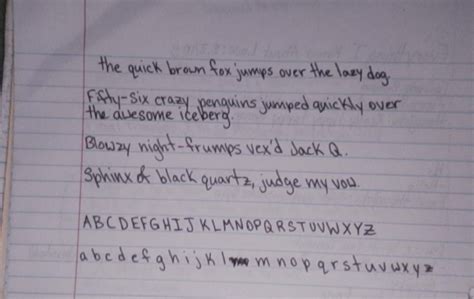 the quick brown fox jumps over the lazy dog.
Fifty-Six crazy penguins jumped quickly over
the awesome iceberg.
Blowzy night-frumps vex'd Jack Q.
Sphinx of black quartz, judge my vow.
ABCDEFGHIJKLMNOPQRSTUVWXYZ
abcdefghijkl m nopqrstuvwxyz